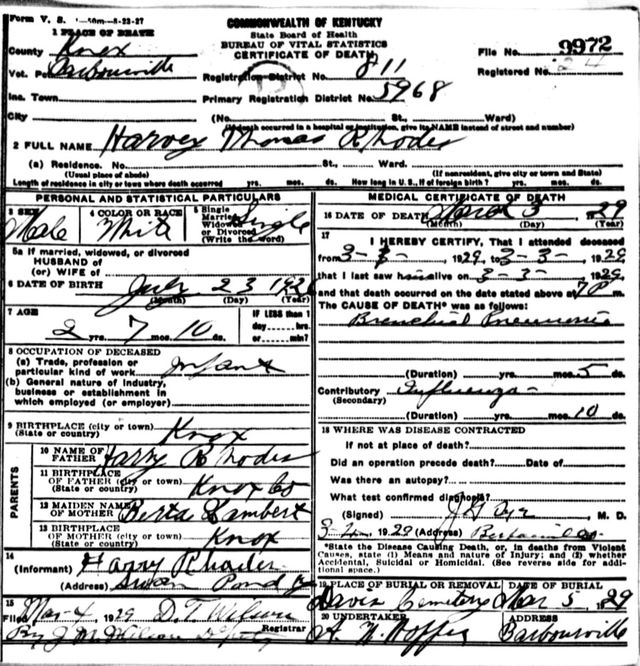 Form V. S. 1-50m-8-23-27
COMMONWEALTH OF KENTUCKY
State Board of Health
BUREAU OF VITAL STATISTICS
CERTIFICATE OF DEATH
1 PLACE OF DEATH
County Knox
File No. 9972
Vot. Barbourville
Registration District No. 811
Registered No. 24
Inc. Town
Primary Registration District No. 5968
City (No. St., Ward)
(If death occurred in a hospital or institution, give its NAME instead of street and number)
2 FULL NAME Harvey Thomas Rhodes
(a) Residence. No. St., Ward.
(Usual place of abode) (If nonresident, give city or town and State)
Length of residence in city or town where death occurred yrs. mos. ds. How long in U. S., if of foreign birth? yrs. mos. ds.
PERSONAL AND STATISTICAL PARTICULARS
3 SEX Male
4 COLOR OR RACE White
5 Single Married Widowed or Divorced (Write the word) Single
5a If married, widowed, or divorced
HUSBAND of
(or) WIFE of
6 DATE OF BIRTH July 23 1926
(Month) (Day) (Year)
7 AGE 2 yrs. 7 mos. 10 ds.
IF LESS than 1 day hrs. or min.?
8 OCCUPATION OF DECEASED
(a) Trade, profession or particular kind of work Infant
(b) General nature of industry, business or establishment in which employed (or employer)
9 BIRTHPLACE (city or town)
(State or country) Knox
PARENTS
10 NAME OF FATHER Harry Rhodes
11 BIRTHPLACE OF FATHER (city or town)
(State or country) Knox Co
12 MAIDEN NAME OF MOTHER Berta Lambert
13 BIRTHPLACE OF MOTHER (city or town)
(State or country) Knox
14
(Informant) Harry Rhodes
(Address) Swan Pond
15
Filed Mar-4 1929 D. T. Wilson
By J M Wilson Registrar
MEDICAL CERTIFICATE OF DEATH
16 DATE OF DEATH March 3 29
(Month) (Day) (Year)
17
I HEREBY CERTIFY, That I attended deceased
from 3-3- 1929, to 3-3- 1929
that I last saw him alive on 3-3- 1929,
and that death occurred on the date stated above at 7P m.
The CAUSE OF DEATH* was as follows:
Bronchial Pneumonia
(Duration) yrs. mos. 5 ds.
Contributory Influenza
(Secondary)
(Duration) yrs. mos. 10 ds.
18 WHERE WAS DISEASE CONTRACTED
If not at place of death?
Did an operation precede death? Date of
Was there an autopsy?
What test confirmed diagnosis?
(Signed) M. D.
3-4 1929 (Address)
*State the Disease Causing Death, or, in deaths from Violent
Causes, state (1) Means and nature of Injury; and (2) whether
Accidental, Suicidal or Homicidal. (See reverse side for addi-
tional space.)
19 PLACE OF BURIAL OR REMOVAL Davis Cemetery
DATE OF BURIAL Mar 5 1929
20 UNDERTAKER
ADDRESS Barbourville